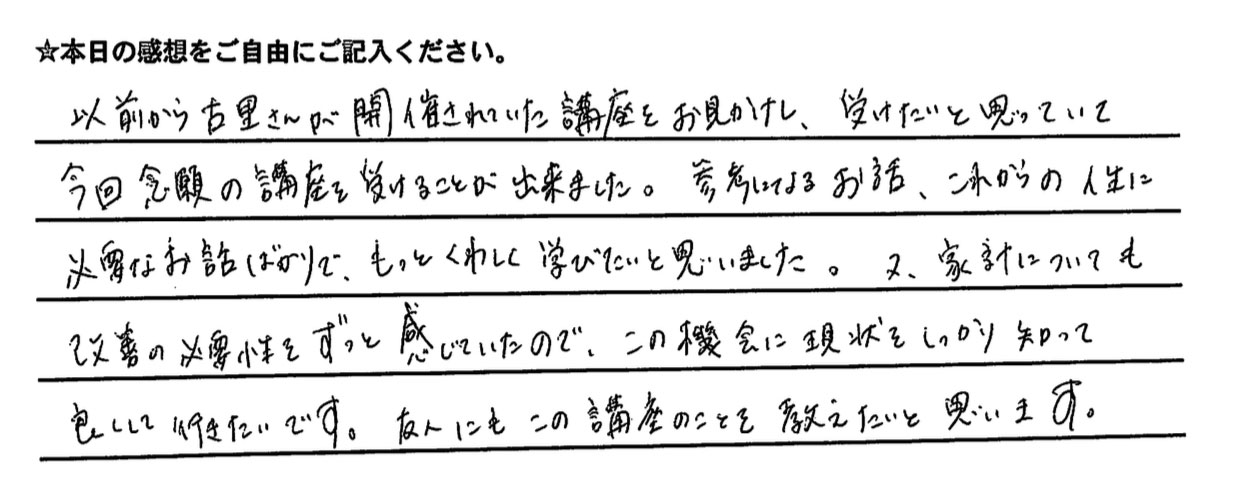 ☆本日の感想をご自由にご記入ください。
以前から古里さんが開催されていた講座をお見かけし、受けたいと思っていて
今回念願の講座を受けることが出来ました。参考になるお話、これからの人生に
必要なお話ばかりで、もっとくわしく学びたいと思いました。又、家計についても
改善の必要性をずっと感じていたので、この機会に現状をしっかり知って
良くして行きたいです。友人にもこの講座のことを教えたいと思います。